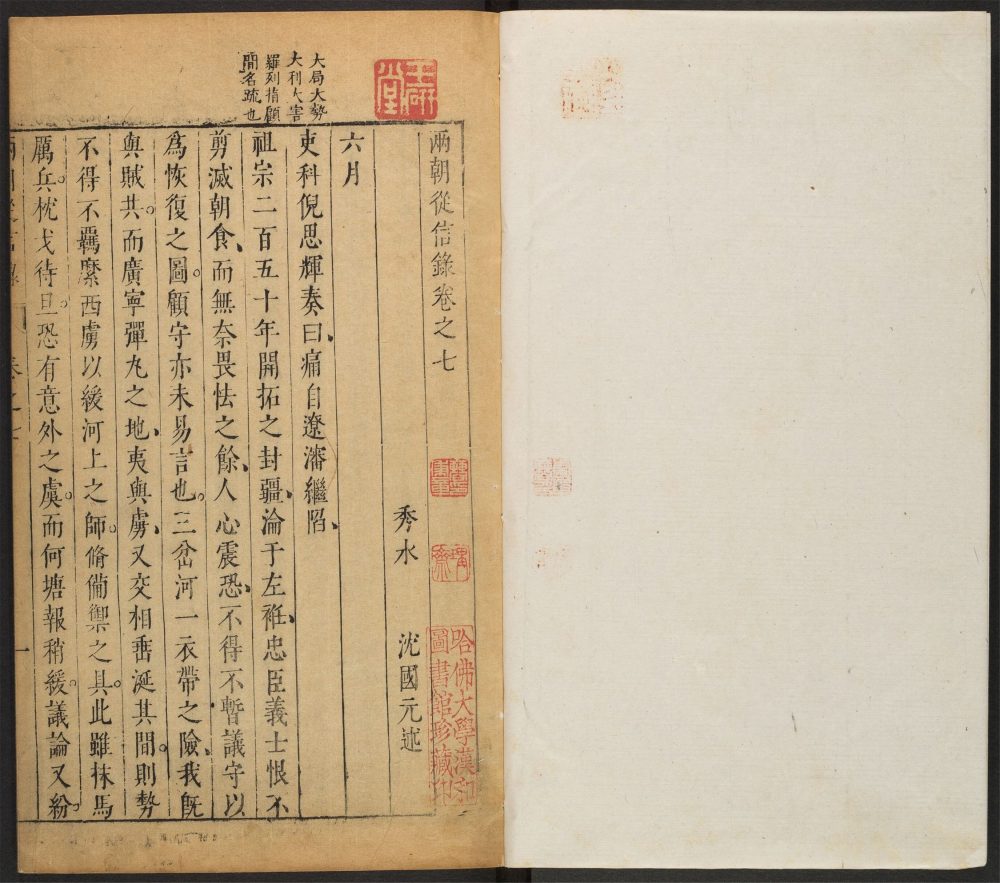 兩朝從信錄卷之七
秀水 沈國元述
六月
吏科倪思輝奏曰痛自遼瀋繼陷
祖宗二百五十年開拓之封疆淪于左袵忠臣義士恨不
剪滅朝食而無奈畏怯之餘人心震恐不得不暫議守以
為恢復之圖顧守亦未易言也三岔河一衣帶之險我旣
與賊共而廣寧彈丸之地夷與虜又交相垂涎其間則勢
不得不羈縻西虜以緩河上之師脩備禦之具此雖抹馬
厲兵枕戈待旦恐有意外之虞而何塘報稍緩議論又紛
大局大勢
大利大害
羅列指顧
間名疏也
卷之七
一
哈佛大學漢和
圖書館珍藏印